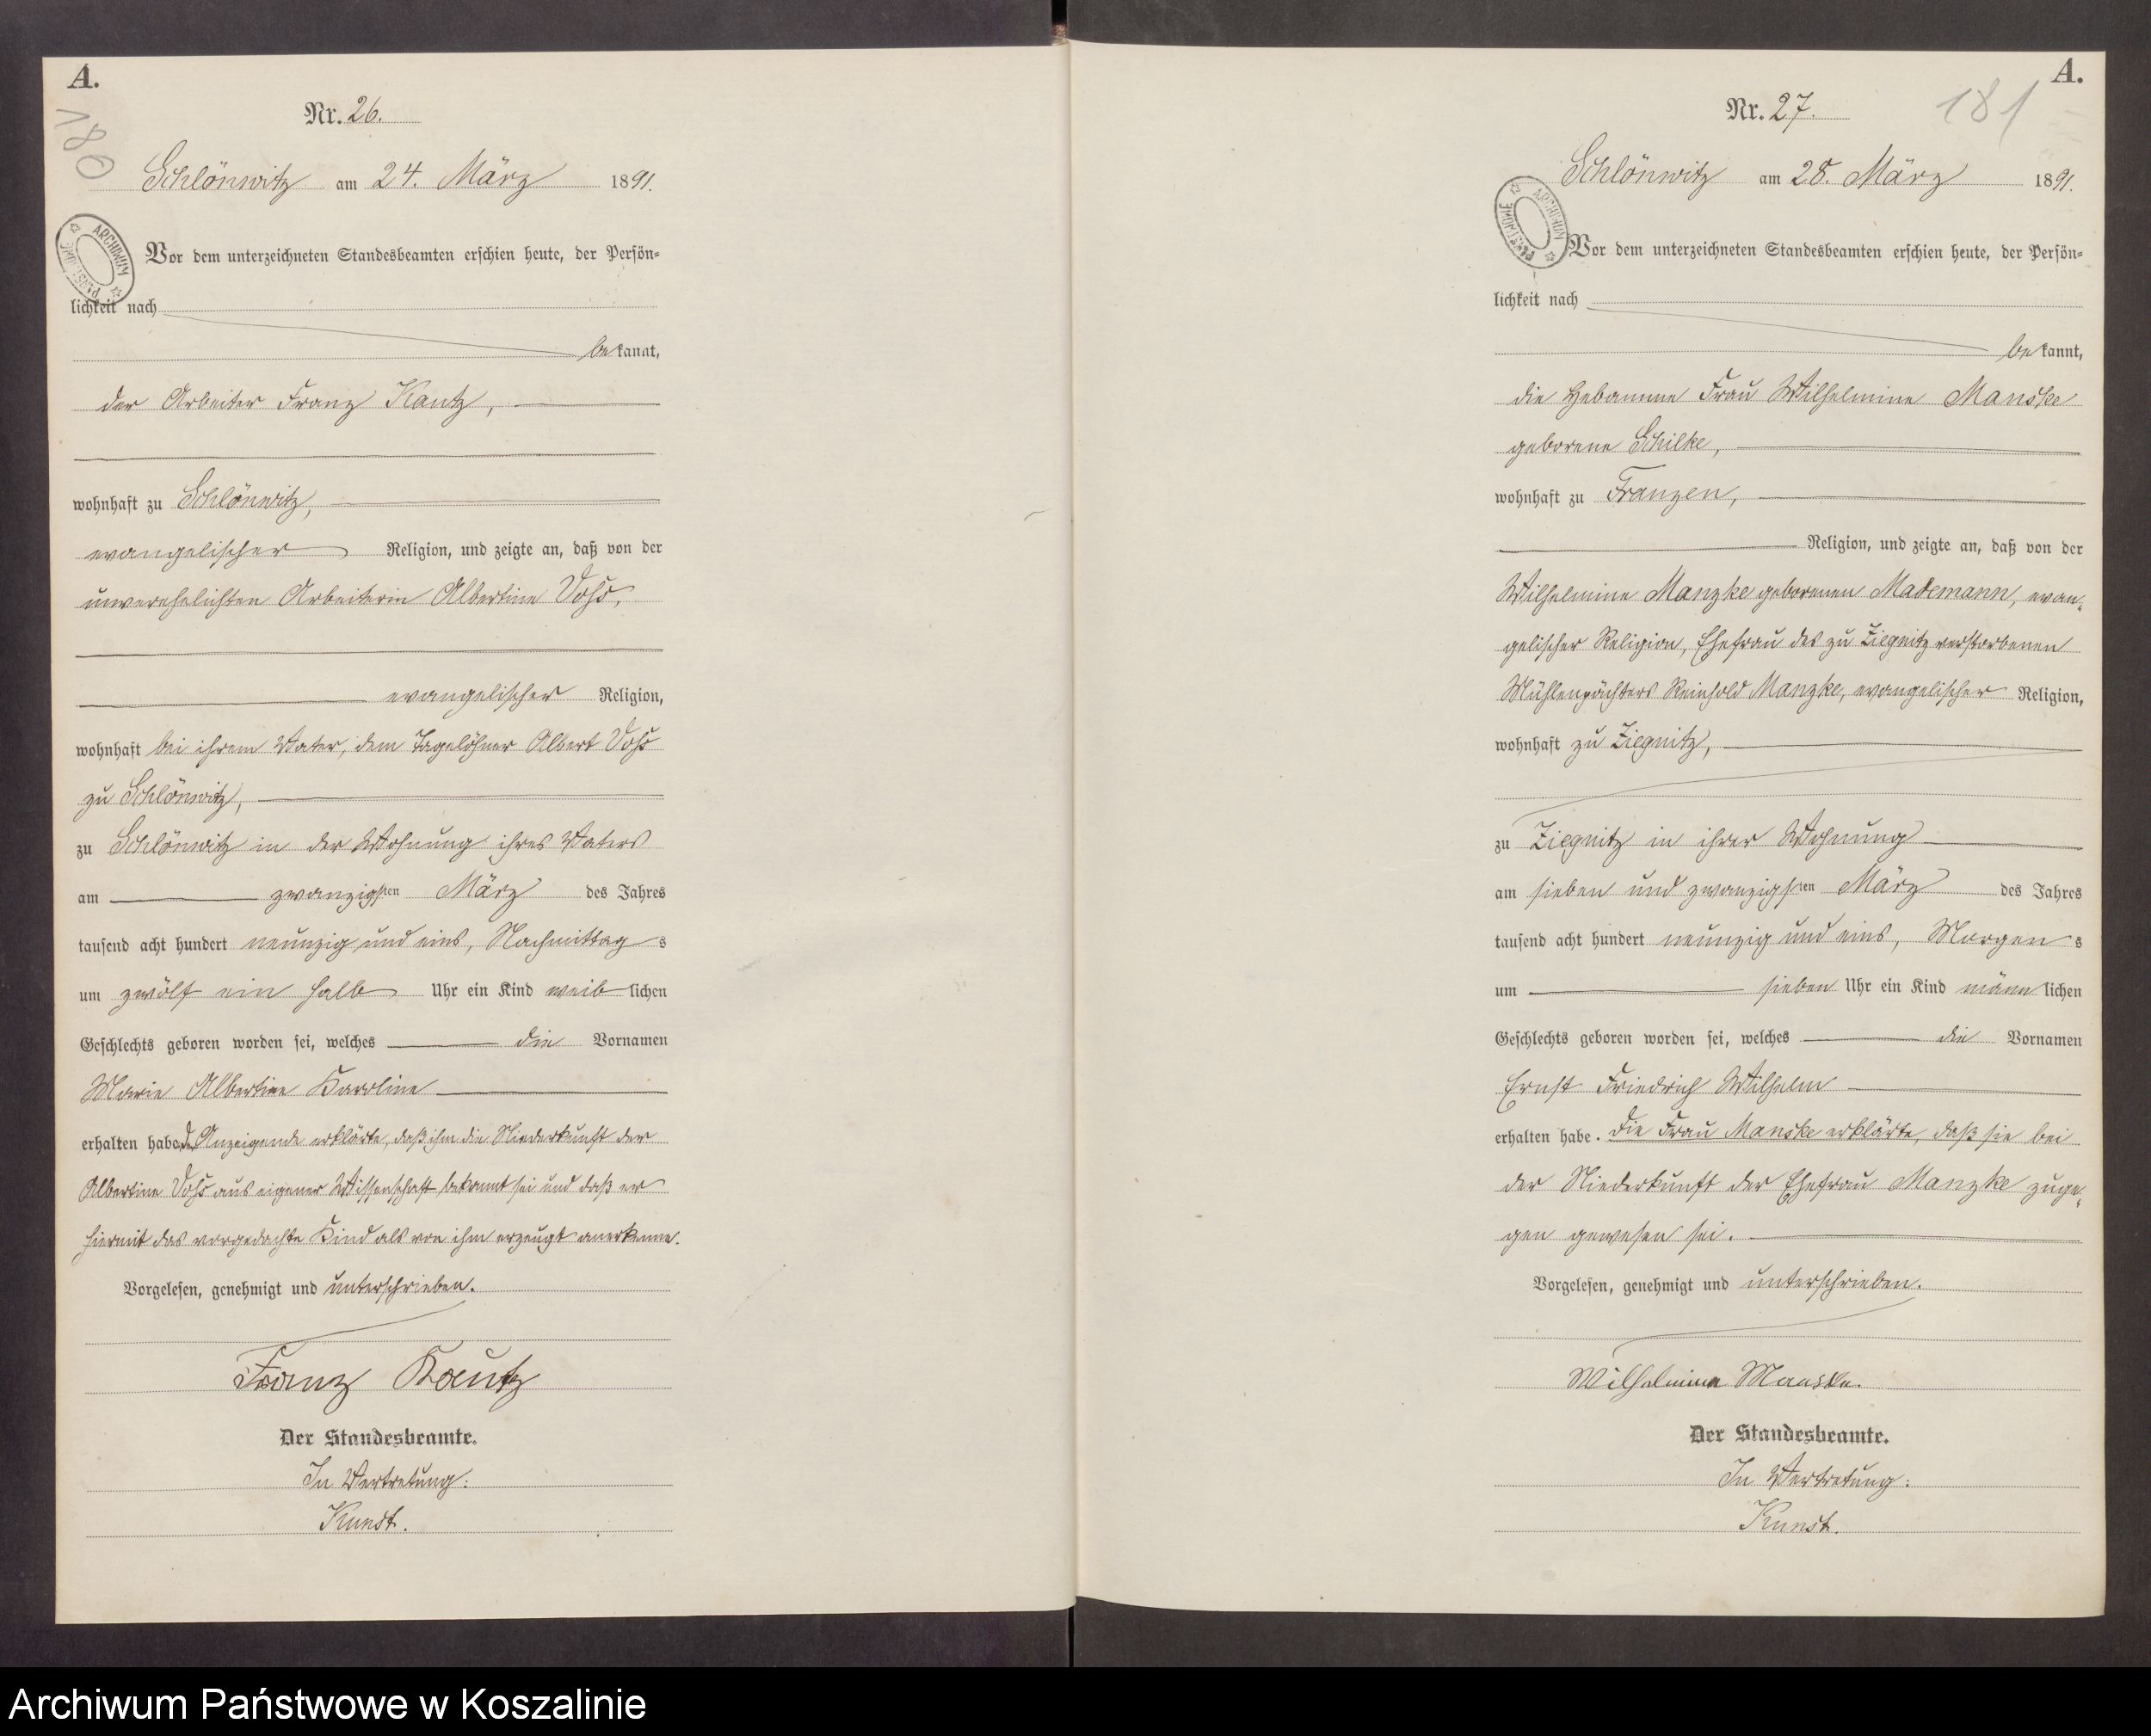 A.
180
Nr. 26.
Schlönwitz am 24. März 1891.
ARCHIWUM
Vor dem unterzeichneten Standesbeamten erschien heute, der Persön=
lichkeit nach
bekannt,
der Arbeiter Franz Kautz,
wohnhaft zu Schlönwitz,
evangelischer Religion, und zeigte an, daß von der
unverehelichten Arbeiterin Albertine Voß,
evangelischer Religion,
wohnhaft bei ihrem Vater, dem Tagelöhner Albert Voß
zu Schlönwitz,
zu Schlönwitz in der Wohnung ihres Vaters
am zwanzigsten März des Jahres
tausend acht hundert neunzig und eins, Nachmittags
um zwölf ein halb Uhr ein Kind weiblichen
Geschlechts geboren worden sei, welches die Vornamen
Marie Albertine Karoline
erhalten habe. Der Anzeigende erklärte, daß ihm die Niederkunft der
Albertine Voß aus eigener Wissenschaft bekannt sei und daß er
hiermit das vorgedachte Kind als von ihm erzeugt anerkenne.
Vorgelesen, genehmigt und unterschrieben.
Franz Kautz
Der Standesbeamte.
In Vertretung:
Kunst.
A.
181
Nr. 27.
Schlönwitz am 28. März 1891.
ARCHIWUM PAŃSTWOWE
Vor dem unterzeichneten Standesbeamten erschien heute, der Persön=
lichkeit nach
bekannt,
die Hebamme Frau Wilhelmine Manske
geborene Schilke,
wohnhaft zu Franzen,
Religion, und zeigte an, daß von der
Wilhelmine Manzke geborenen Mademann, evan=
gelischer Religion, Ehefrau des zu Ziegnitz verstorbenen
Mühlenpächters Reinhold Manzke, evangelischer Religion,
wohnhaft zu Ziegnitz,
zu Ziegnitz in ihrer Wohnung
am sieben und zwanzigsten März des Jahres
tausend acht hundert neunzig und eins, Morgens
um sieben Uhr ein Kind männlichen
Geschlechts geboren worden sei, welches die Vornamen
Ernst Friedrich Wilhelm
erhalten habe. Die Frau Manske erklärte, daß sie bei
der Niederkunft der Ehefrau Manzke zuge=
gen gewesen sei.
Vorgelesen, genehmigt und unterschrieben.
Wilhelmine Manske.
Der Standesbeamte.
In Vertretung:
Kunst.
Archiwum Państwowe w Koszalinie